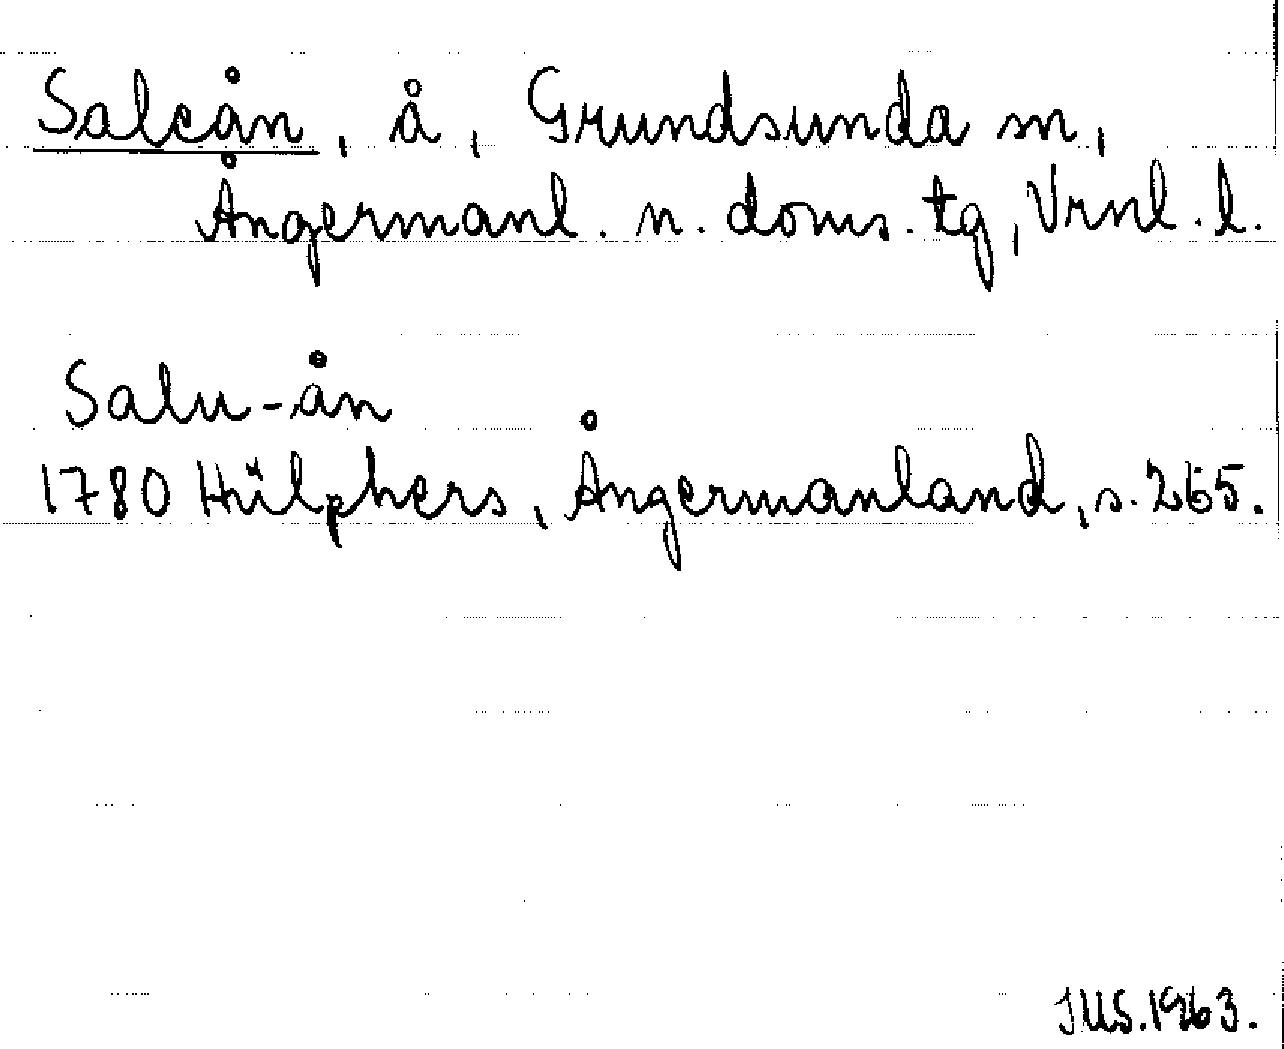 Saleån, å, Grundsunda sn,
Ångermanl. n. doms. tg, Vrnl. l.
Salu-ån
1780 Hülphers, Ångermanland, s. 265.
JUS. 1963.